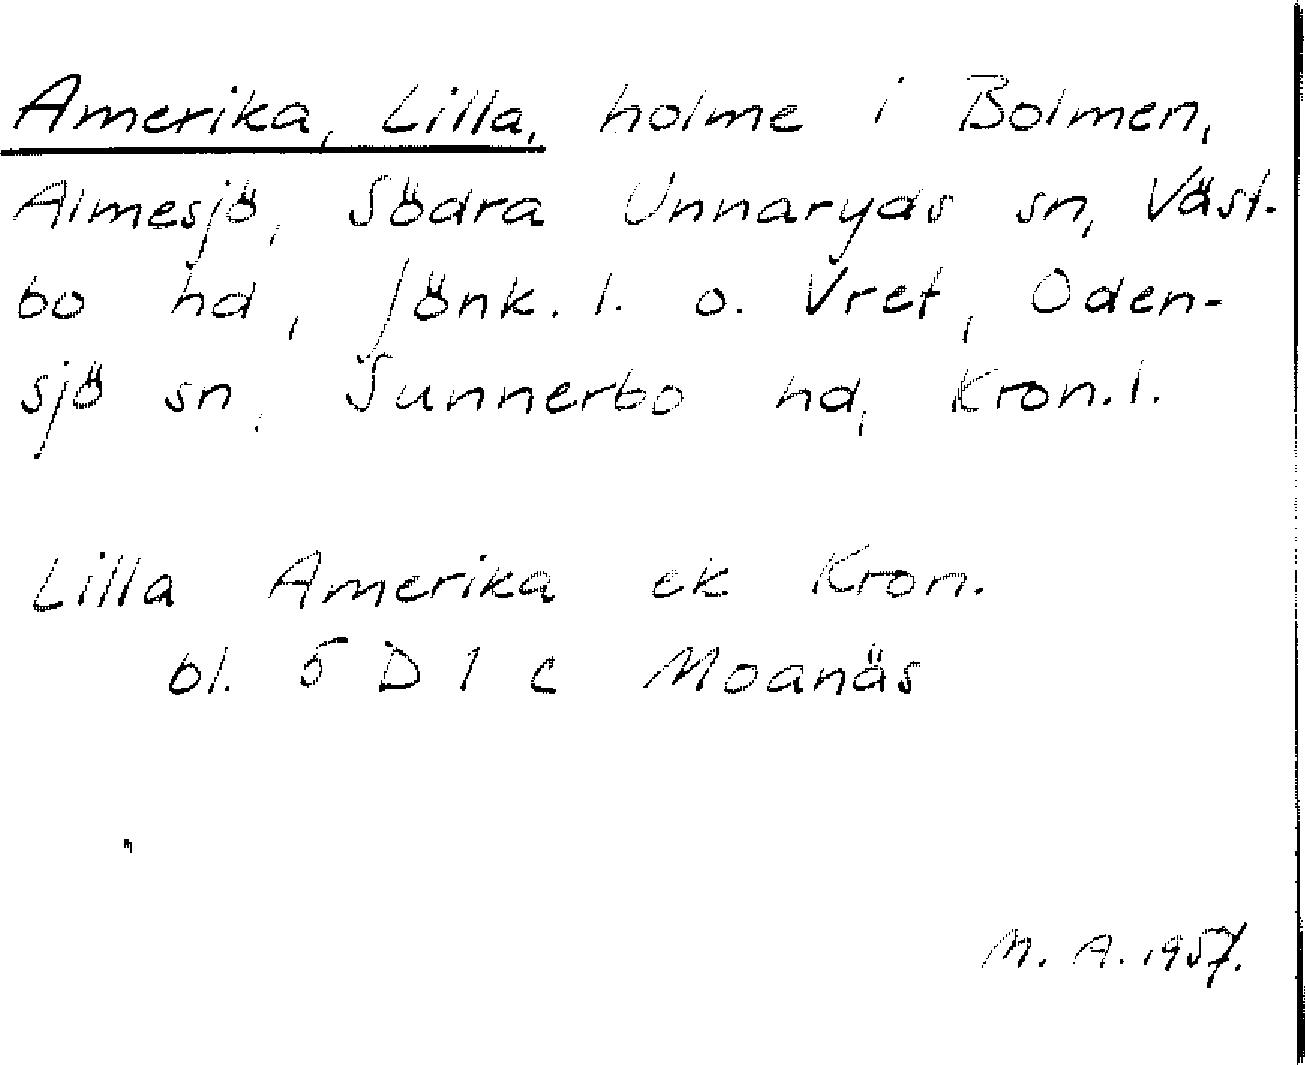 Amerika, Lilla, holme i Bolmen,
Almesjö, Södra Unnaryds sn, Väst-
bo hd, Jönk. l. o. Vret, Oden-
sjö sn, Sunnerbo hd, Kron. l.
Lilla Amerika ek Kron.
bl. 5 D 1 c Moanäs
M. A. 1957.